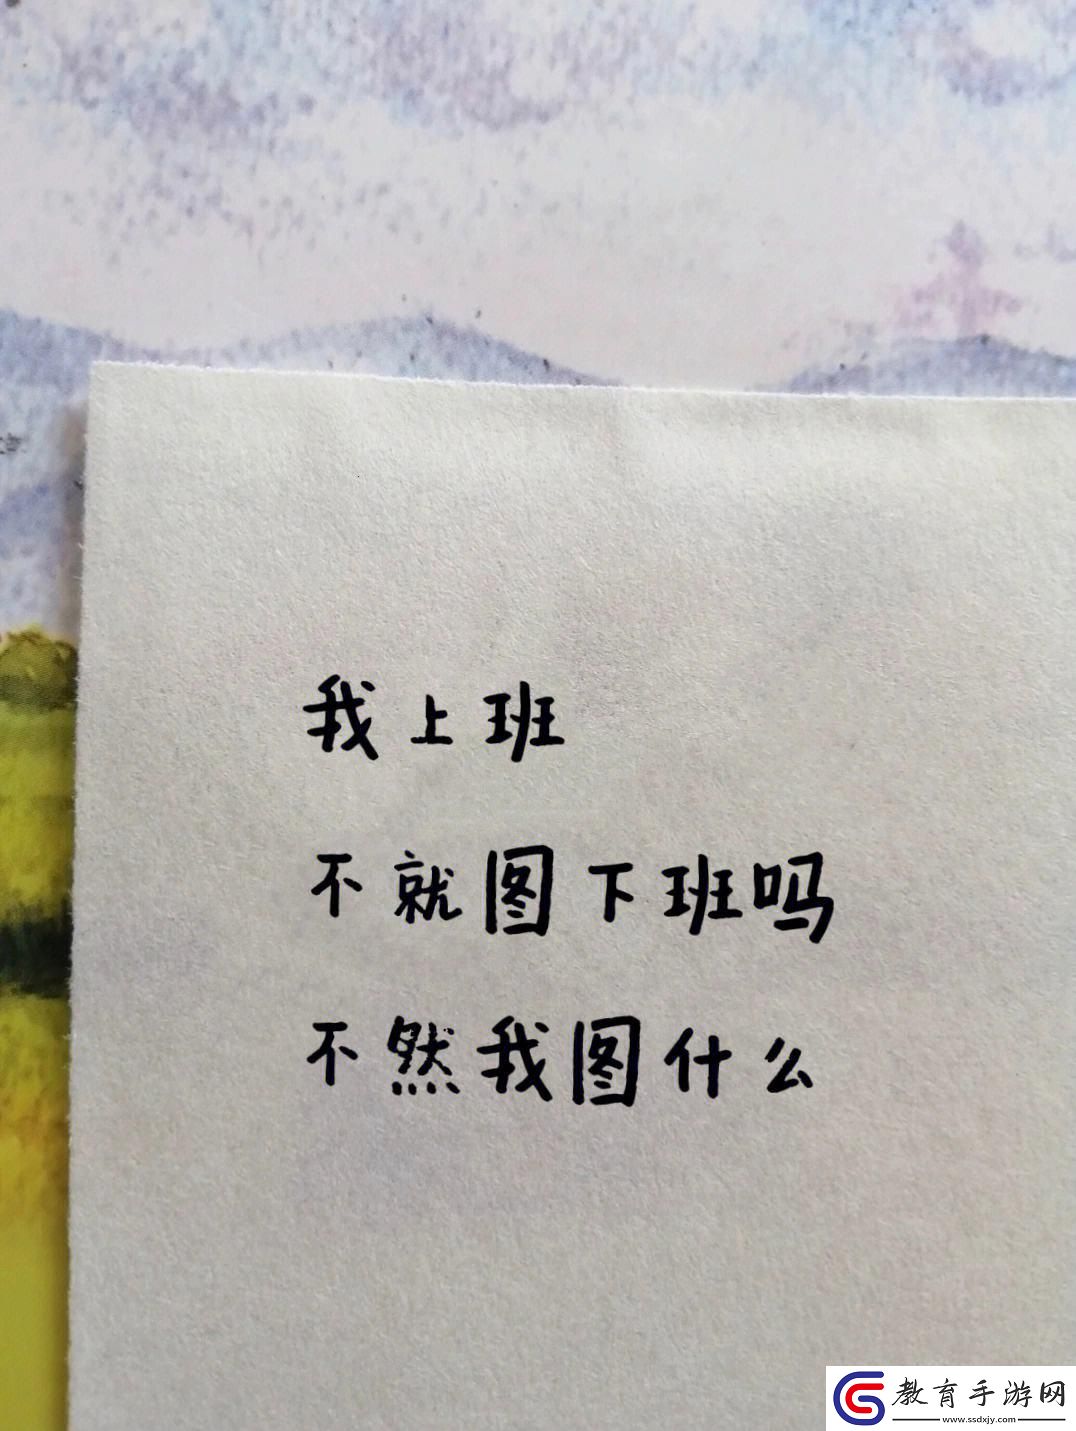 我上班
不就图下班吗
不然我图什么
教育手游网
www.ssdxjy.com